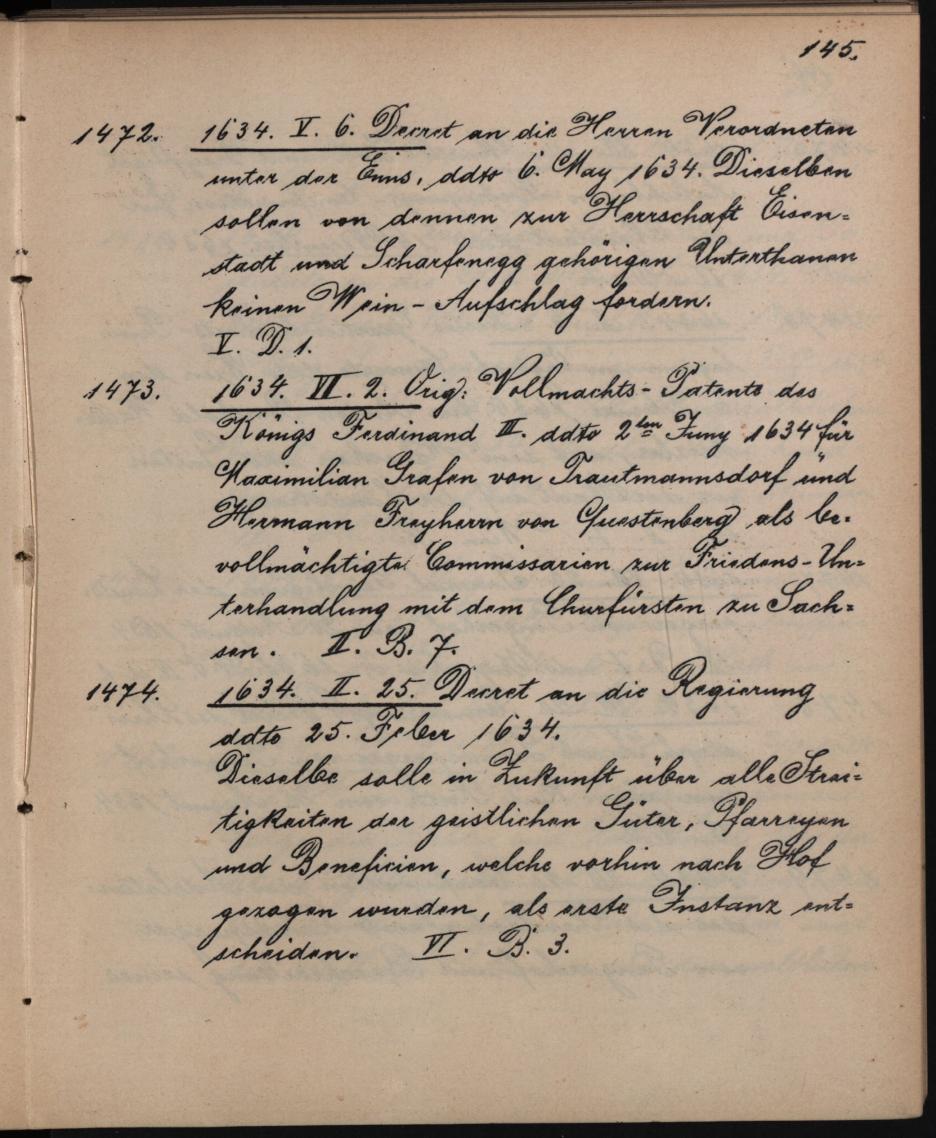 145.
1472. 1634. V. 6. Decret an die Herren Verordneten
unter der Enns, ddto 6. May 1634. Dieselben
sollen von dennen zur Herrschaft Eisen=
stadt und Scharfenegg gehörigen Unterthanen
keinen Wein - Aufschlag fordern.
V. D. 1.
1473. 1634. VI. 2. Orig: Vollmachts - Patents des
Königs Ferdinand III. ddto 2ten Juny 1634 für
Maximilian Grafen von Trautmannsdorf und
Hermann Freyherrn von Questenberg als be=
vollmächtigte Commissarien zur Friedens - Un=
terhandlung mit dem Churfürsten zu Sach=
sen. II. B. 7.
1474. 1634. II. 25. Decret an die Regierung
ddto 25. Feber 1634.
Dieselbe solle in Zukunft über alle Strei=
tigkeiten der geistlichen Güter, Pfarreyen
und Beneficien, welche vorhin nach Hof
gezogen wurden, als erste Instanz ent=
scheiden. VI. B. 3.